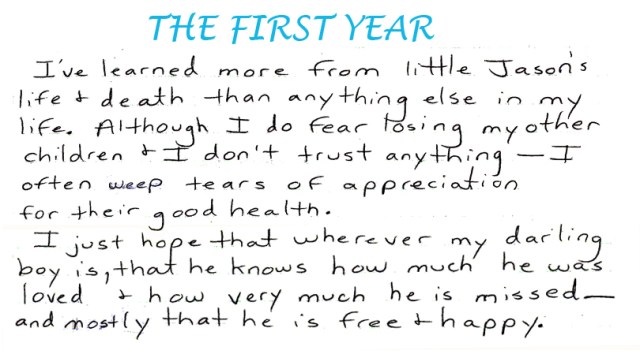 THE FIRST YEAR
I've learned more from little Jason's
life & death than anything else in my
life. Although I do fear losing my other
children & I don't trust anything — I
often weep tears of appreciation
for their good health.
I just hope that wherever my darling
boy is, that he knows how much he was
loved & how very much he is missed—
and mostly that he is free & happy.